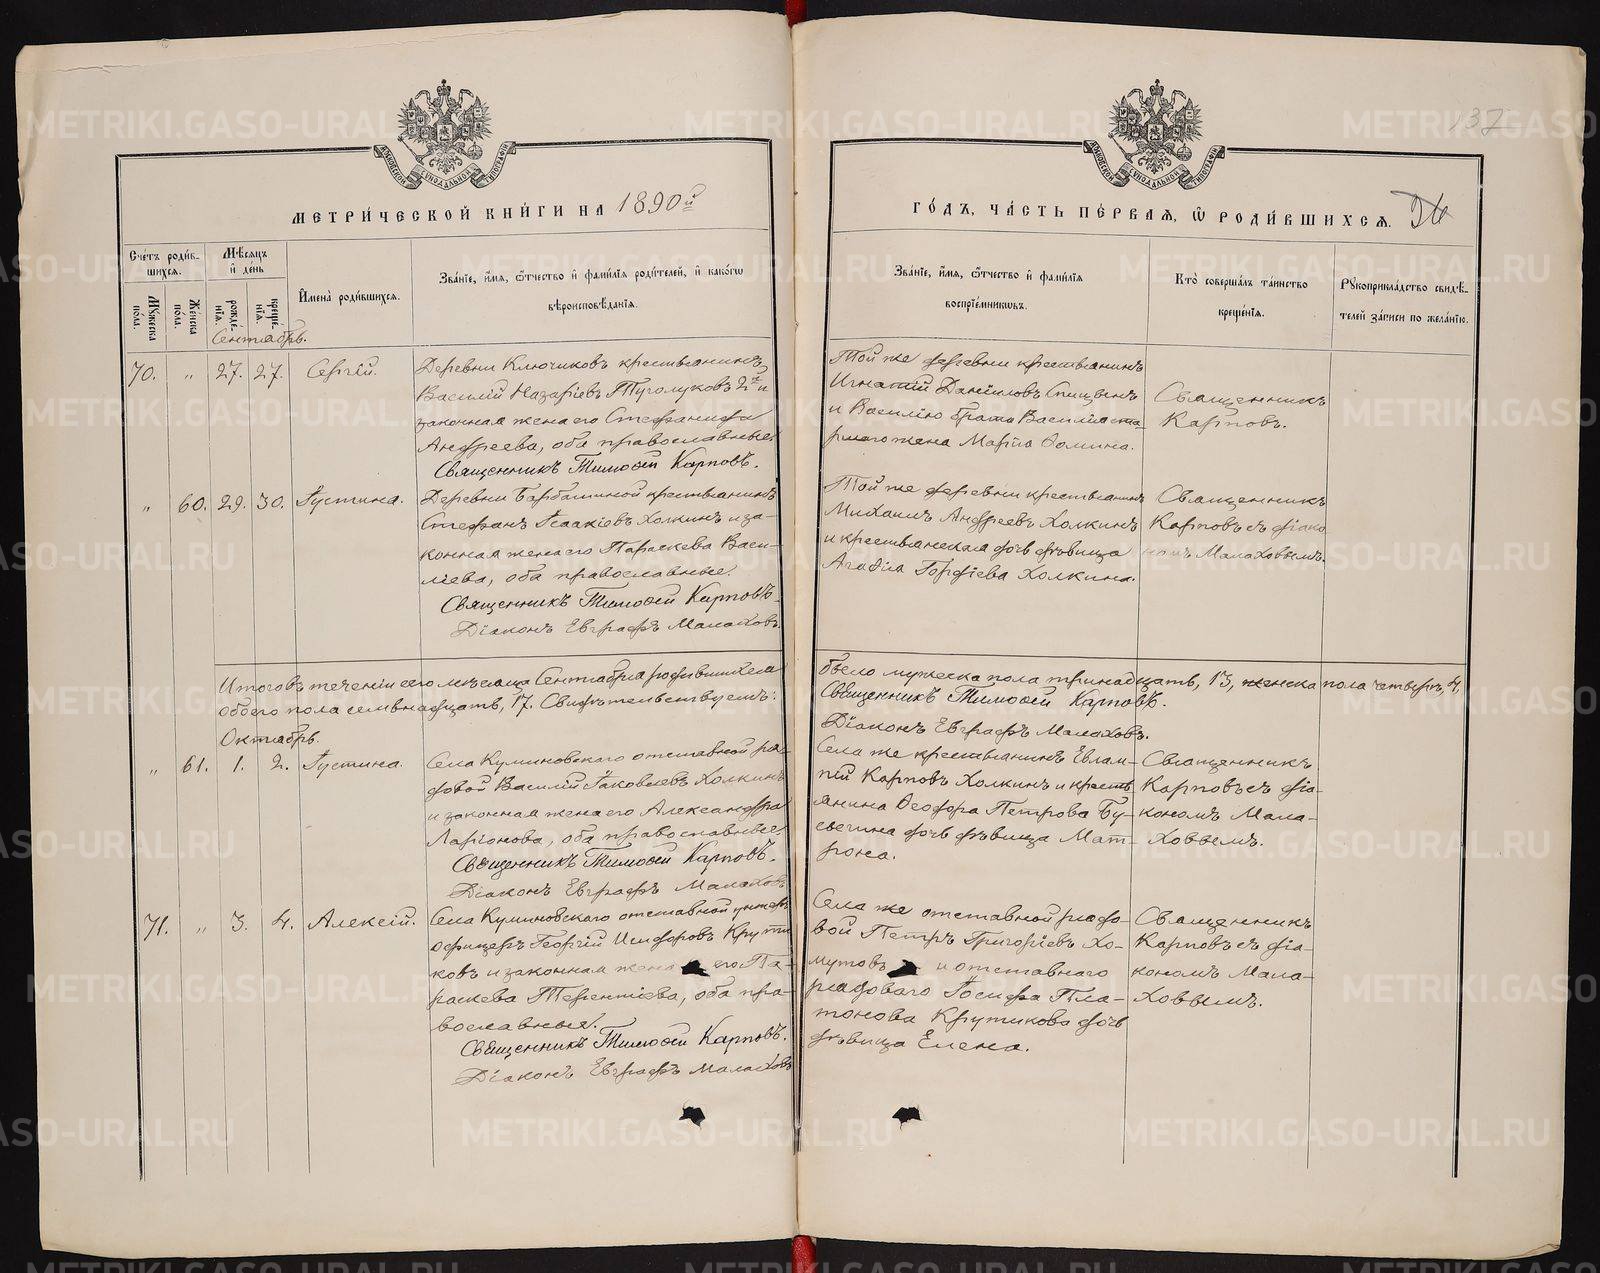 137
МЕТРИ́ЧЕСКОЙ КНИ́ГИ НА 1890й
ГО́ДЪ, ЧА́СТЬ ПЕ́РВАЯ, Ѡ РОДИ́ВШИХСЯ.
Сче́тъ роди́в-
шихся.
Мѣ́сяцъ
и҆ де́нь
Мꙋ́жеска
по́ла.
Же́нска
по́ла.
рожде́-
нїя.
креще́-
нїя.
И҆мена̀ роди́вшихся.
Зва́нїе, и҆́мя, ѻ҆́тчество и҆ фами́лїя роди́телей, и҆ како́гѡ
вѣроисповѣ́данїя.
Зва́нїе, и҆́мя, ѻ҆́тчество и҆ фами́лїя
воспрїе́мникѡвъ.
Кто̀ соверша́лъ та́инство
креще́нїя.
Рꙋкоприкла́дство свидѣ́-
телей за́писи по жела́нїю.
Сентябрь.
70. " 27. 27. Сергій.
Деревни Ключиковъ крестьянинъ
Василій Назаріевъ Туголуковъ 2й и
законная жена его Стефанида
Андреева, оба православные.
Священникъ Тимоѳей Карповъ.
Той же деревни крестьянинъ
Игнатій Даніиловъ Спицынъ
и Василію брата Василія ста-
ршаго жена Марія Ѳомина.
Священникъ
Карповъ.
" 60. 29. 30. Іустина.
Деревни Барабашиной крестьянинъ
Стефанъ Исаакіевъ Холкинъ и за-
конная жена его Параскева Васи-
ліева, оба православные.
Священникъ Тимоѳей Карповъ.
Діаконъ Евграфъ Малаховъ.
Той же деревни крестьянинъ
Михаилъ Андреевъ Холкинъ
и крестьянская дочь дѣвица
Агафія Гордіева Холкина.
Священникъ
Карповъ съ діако
номъ Малаховымъ.
Итого въ теченіи сего мѣсяца Сентября родившихся
обоего пола семнадцать, 17. Свидѣтельствуемъ:
было мужеска пола тринадцать, 13, женска пола четыре, 4.
Священникъ Тимоѳей Карповъ.
Діаконъ Евграфъ Малаховъ.
Октябрь.
" 61. 1. 2. Іустина.
Села Куминовскаго отставной ря-
довой Василій Іаковлевъ Холкинъ
и законная жена его Александра
Ларіонова, оба православные.
Священникъ Тимоѳей Карповъ.
Діаконъ Евграфъ Малаховъ
Села же крестьянинъ Евлам-
пій Карповъ Холкинъ и кресть-
янина Ѳеодора Петрова Бу-
сыгина дочь дѣвица Мат-
рона.
Священникъ
Карповъ съ діа-
кономъ Мала-
ховымъ.
71. " 3. 4. Алексій.
Села Куминовскаго отставной унтеръ
офицеръ Георгій Исидоровъ Крути-
ковъ и законная жена его Па-
раскева Терентіева, оба пра-
вославные.
Священникъ Тимоѳей Карповъ.
Діаконъ Евграфъ Малаховъ
Села же отставной рядо-
вой Петръ Григоріевъ Хо-
мутовъ и отставнаго
рядоваго Іосифа Пла-
тонова Крутикова дочь
дѣвица Елена.
Священникъ
Карповъ съ діа-
кономъ Мала-
ховымъ.
METRIKI.GASO-URAL.RU